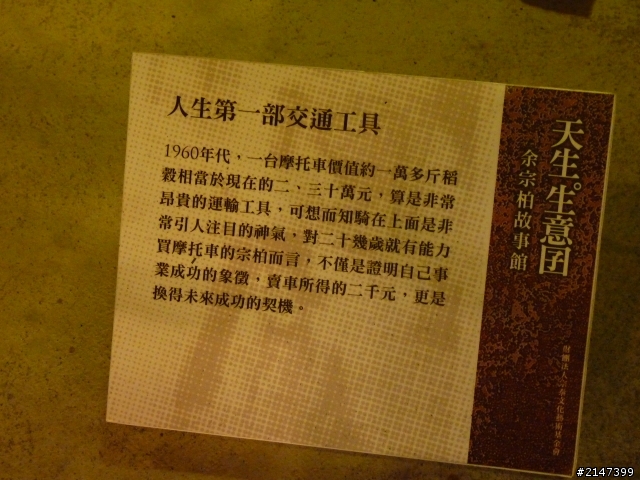 人生第一部交通工具
1960年代，一台摩托車價值約一萬多斤稻
穀相當於現在的二、三十萬元，算是非常
昂貴的運輸工具，可想而知騎在上面是非
常引人注目的神氣，對二十幾歲就有能力
買摩托車的宗柏而言，不僅是證明自己事
業成功的象徵，賣車所得的二千元，更是
換得未來成功的契機。
天生生意囝
余宗柏故事館
財團法人 文化藝術基金會
#2147399